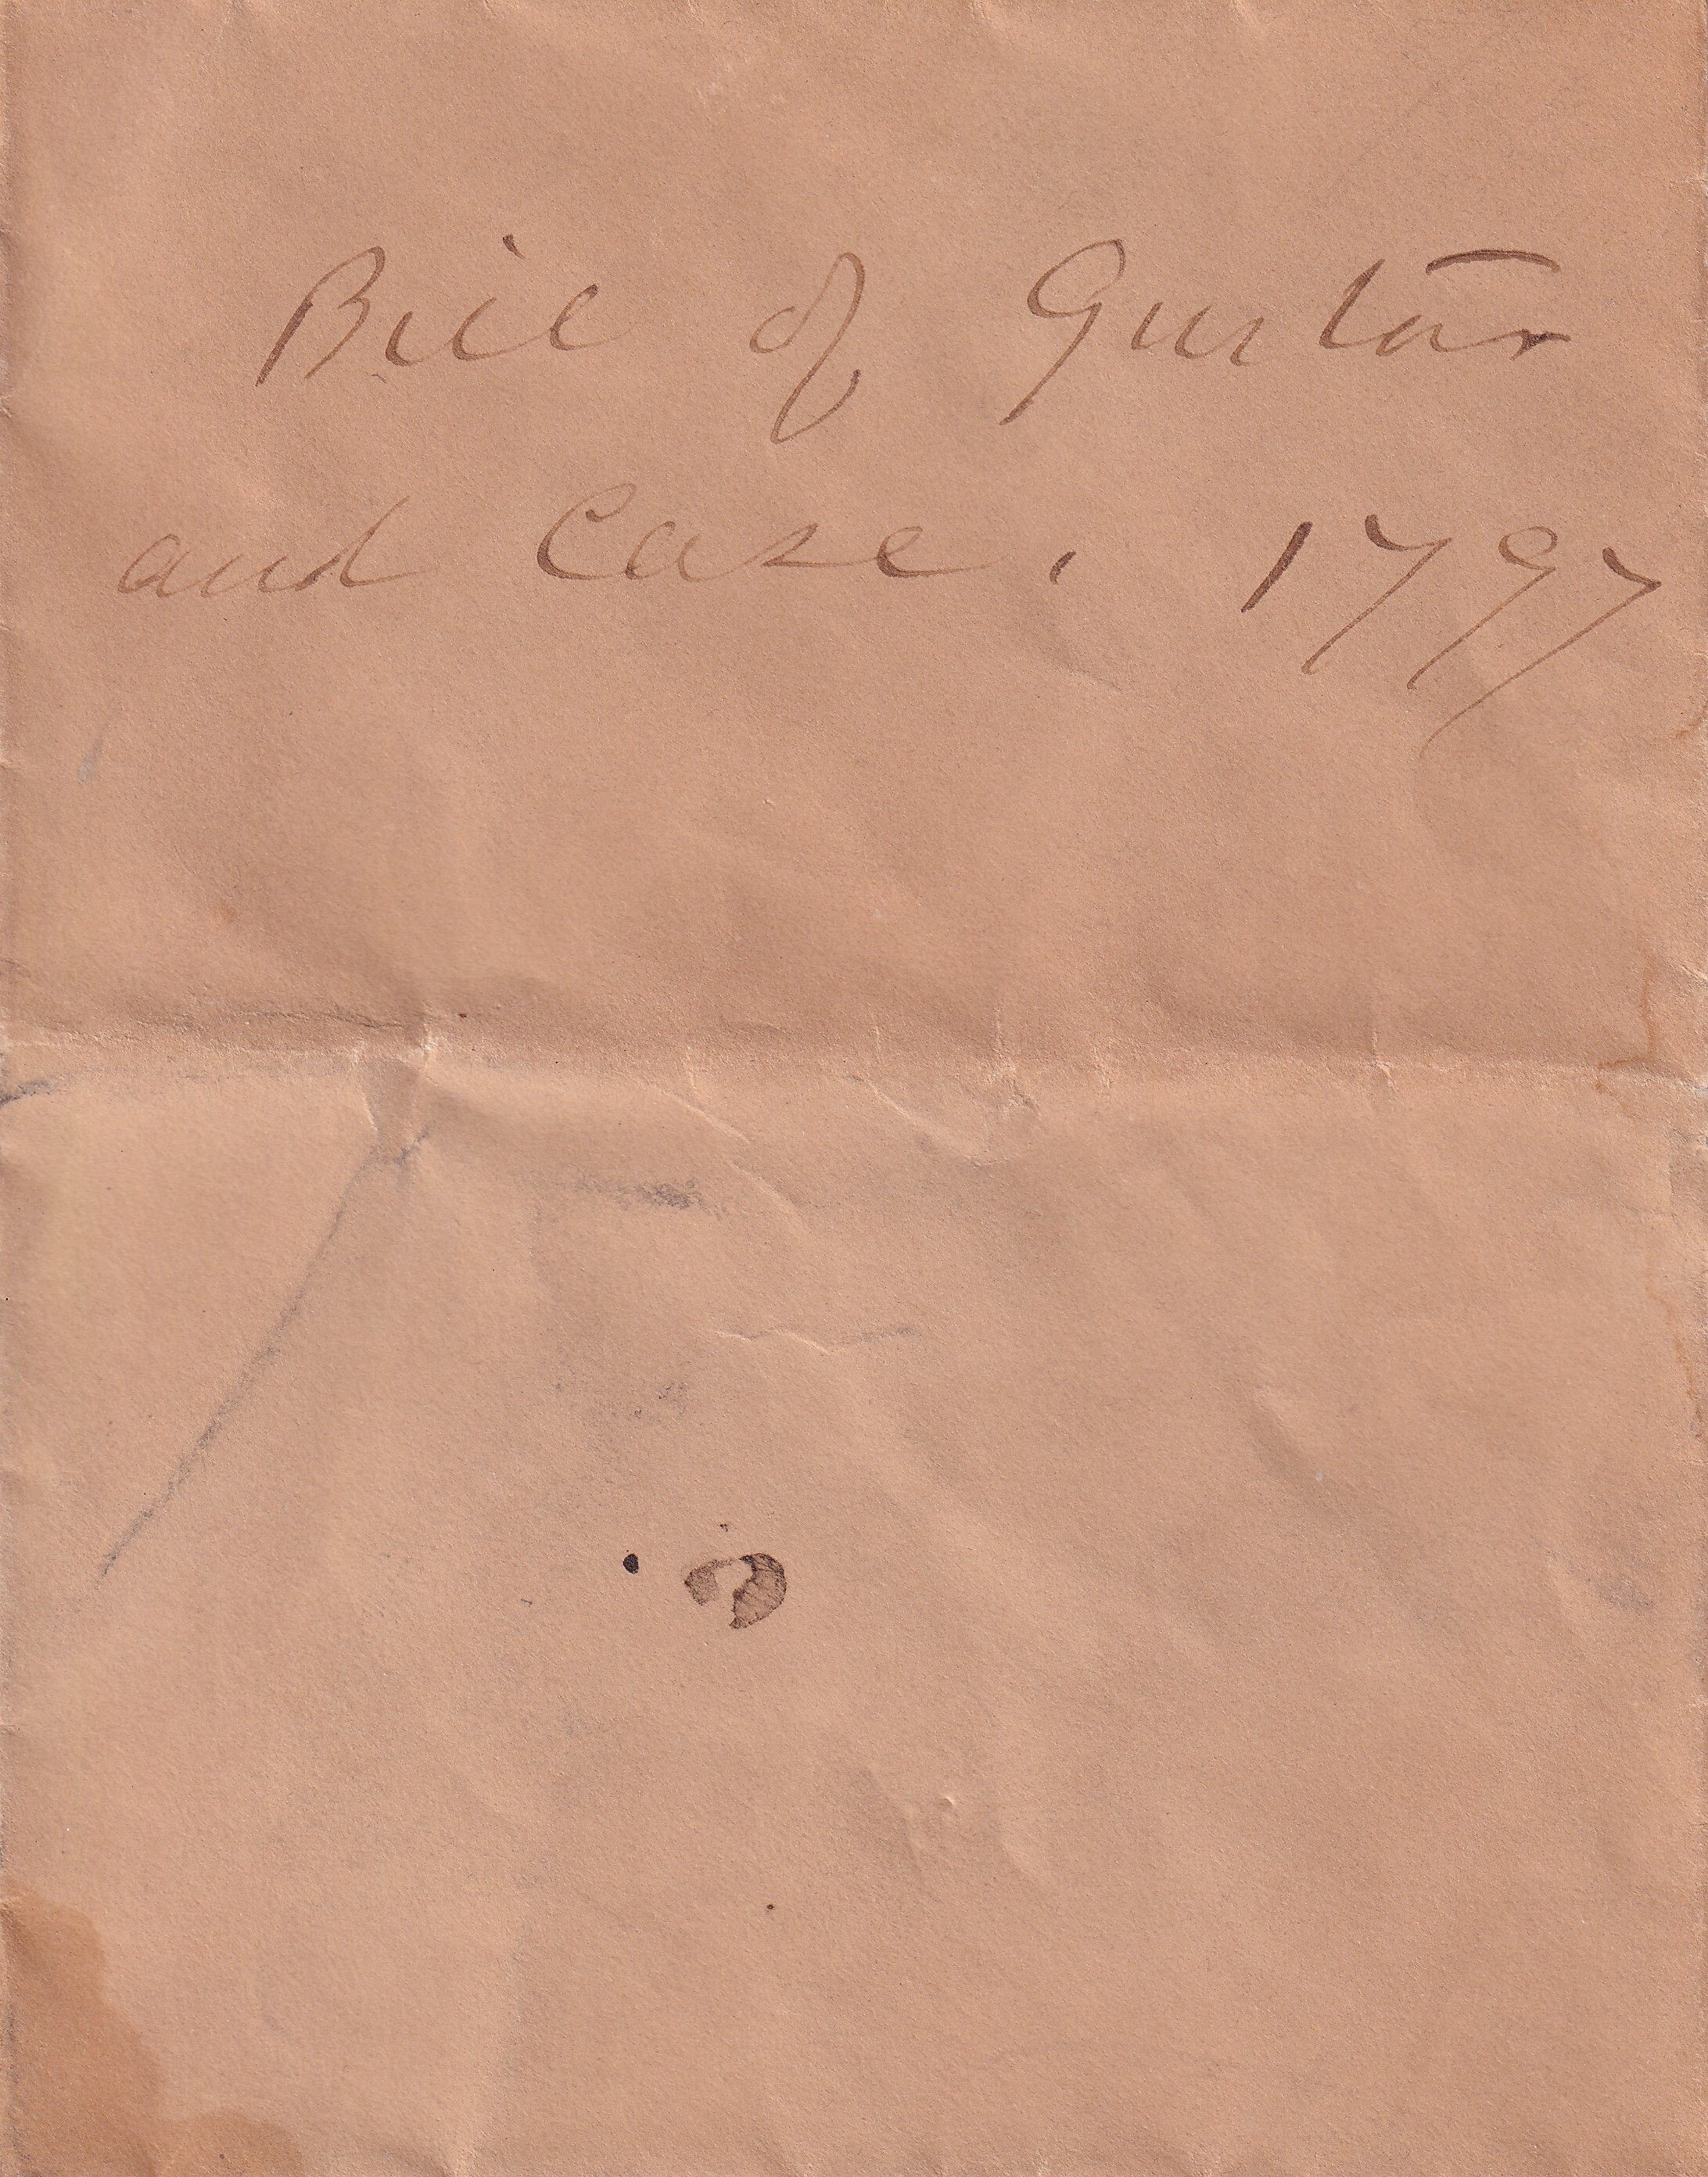 Bill of Guitar
and Case. 1797